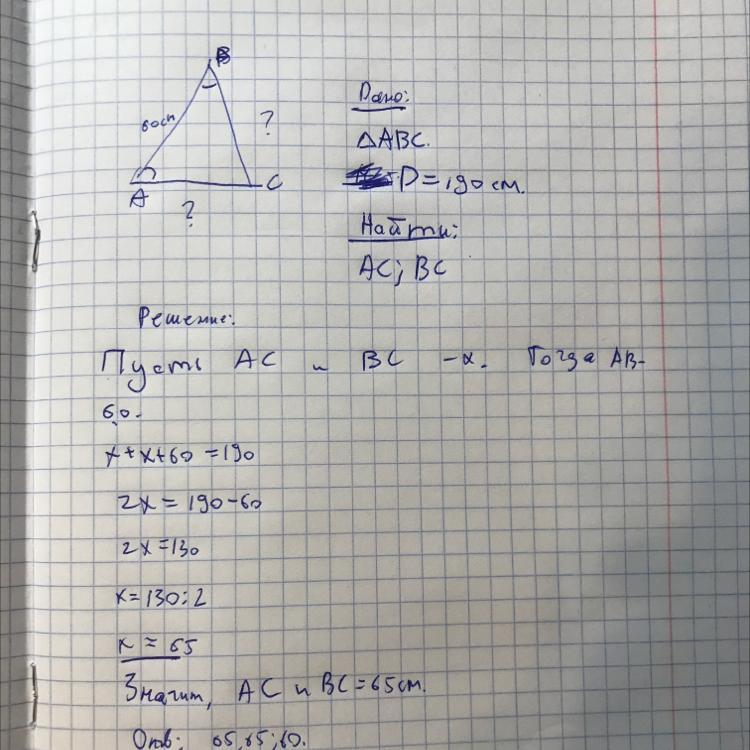 B
60см
?
A
C
?
Дано:
△ABC.
P=190 см.
Найти:
AC; BC
Решение:
Пусть AC и BC -x. Тогда AB-
60.
x+x+60=190
2x=190-60
2x=130
x=130:2
x=65
Значит, AC и BC=65см.
Отв: 65,65;60.